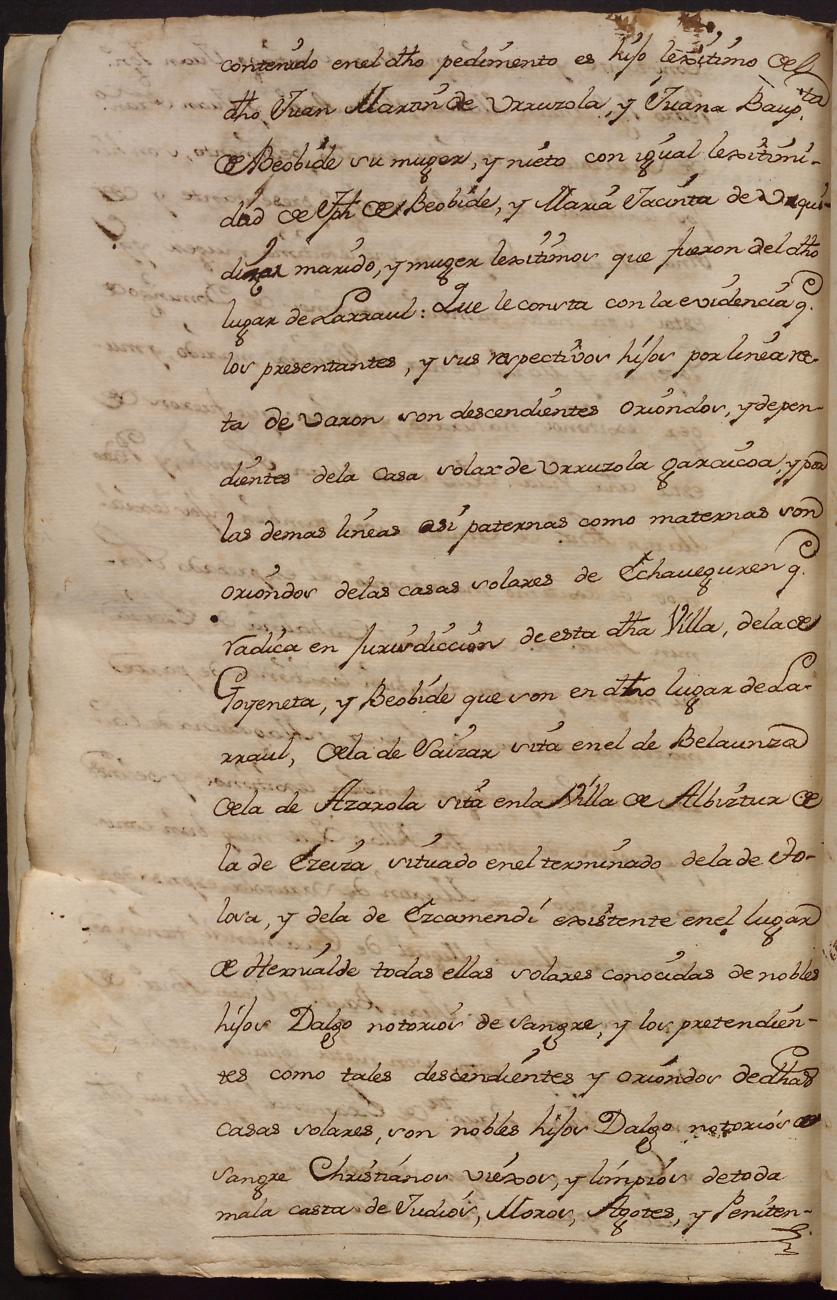 contenido enel dho pedimento es hijo lexitimo del
dho Juan Martin de Urruzola, y Juana Bap.ta
de Beobide su muger, y nieto con igual lexitimi-
dad de Jph de Beobide, y Maria Jacinta de Urqui-
dizar marido, y muger lexitimos que fueron del dho
lugar de Larraul: Que le consta con la evidencia q.
los presentantes, y sus respectivos hijos por linea re-
ta de varon son descendientes oriondos, y depen-
dientes dela casa solar de Urruzola garaicoa, y por
las demas lineas asi paternas como maternas son
oriondos delas casas solares de Echaveguren q.
radica en Jurisdiccion de esta dha Villa, dela de
Goyeneta, y Beobide que son en dho lugar de La-
rraul, dela de Saizar sita enel de Belaunza
dela de Azarola sita enla Villa de Albiztur de
la de Ezeiza situado enel terminado dela de To-
losa, y dela de Ezcamendi existente enel lugar
de Hernialde todas ellas solares conocidas de nobles
hijos Dalgo notorios de sangre, y los pretendien-
tes como tales descendientes y oriondos de dhas
casas solares, son nobles hijos Dalgo notorios de
sangre Christianos viexos, y limpios de toda
mala casta de Judios, Moros, Agotes, y Peniten-